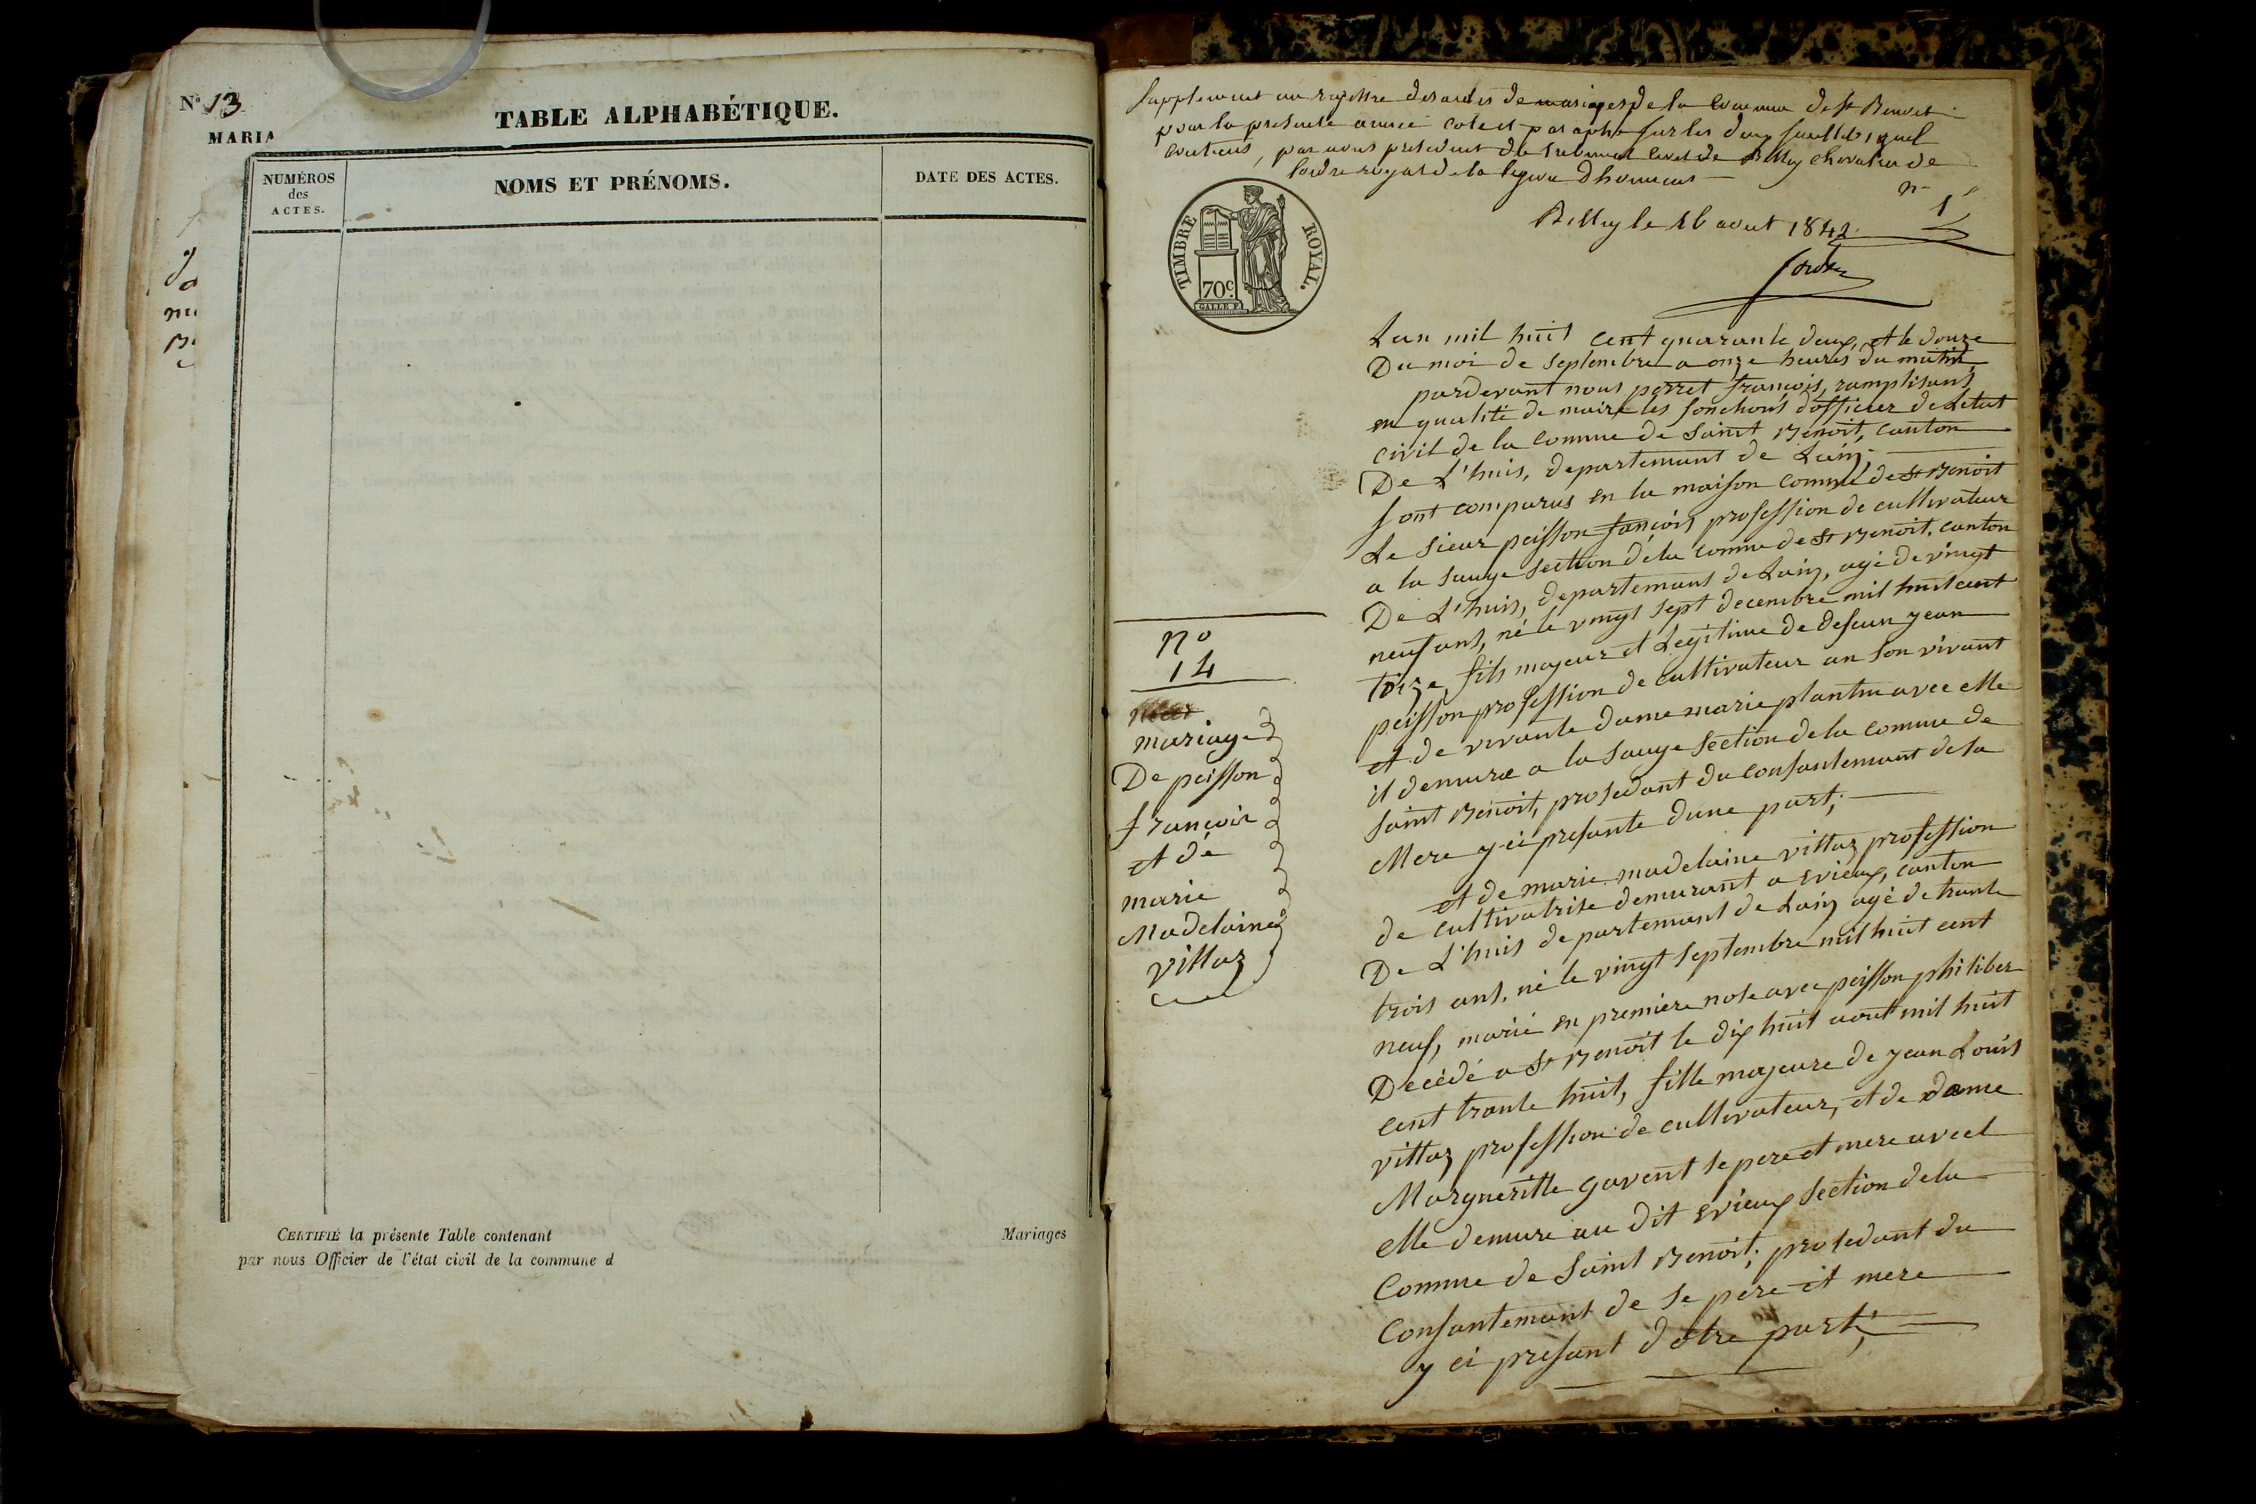 N° 13
MARIA
TABLE ALPHABÉTIQUE.
NUMÉROS
des
ACTES.
NOMS ET PRÉNOMS.
DATE DES ACTES.
CERTIFIÉ la présente Table contenant
Mariages
par nous Officier de l'état civil de la commune d
Supplement au registre des actes de mariages de la commune de St Benoit
pour la presente année coté et paraphé sur les deux feuillets
contenus, par nous president du tribunal civil de Belley chevalier de
lordre royal de la legion dhonneur
n-
1
Belley le 16 aout 1842
TIMBRE ROYAL.
70c.
GALLE F.
Lan mil huit cent quarante deux, et le douze
Du moi de septembre a onze heures du matin,
pardevant nous perret françois, ramplisant
en qualité de maire les fonchons dofficier de Letat
civil de la comme de saint Benoit, canton
De L'huis, departemant de Lain;
sont comparus en la maison comme de St Benoit
Le sieur peisson fançois profession de cultivateur
a la sauge section déla comme de St Benoit, canton
De L'huis, departemans de Lain, agé de vingt
neuf ans, né le vingt sept decembre mil huit cent
tôize, fils majeur et Legitime de defeun jean
peisson profession de cultivateur an son vivant
et de vivante dame marie plantin avec elle
il demure a la sauge section dela comme de
saint Benoit, prosedant du consantemant de sa
Mere y ci presante dune part;
et de marie madelaine vittoz profession
de cultivatrise demurant a evieux, canton
De L'huis departemant de Lain agé de trante
trois ans, né le vingt septembre mil huit cent
neuf, marié en premiere nose avec peisson philiber
Decédé a St Benoit le dix huit aout mil huit
cent trante huit, fille majeure de jean Louis
vittoz profession de cultivateur, et de dame
Margueritte gavent se pere et mere avec l
elle demure au dit evieux section dela
Comme de saint Benoit; prosedant du
Consantemant de se pere et mere
y ci presant dotre part;
n°
14
mariage
De peisson
françois
et de
marie
Madelaine
vittoz